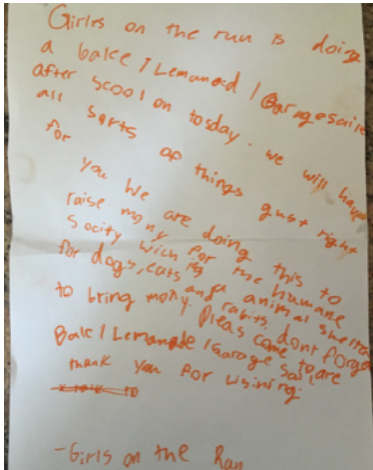 Girls on the run is doing
a bake / Lemanaid / Garagesaile
after scool on tosday. we will have
all sorts of things gust right
for you we are doing this to
raise mony for the humane
socity wich is an animal shelter
for dogs, cats and rabits. dont forget
to bring mony. Pleas come to are
Bake / Lemanade / Garage sail
thank you for lisining
-Girls on the Run